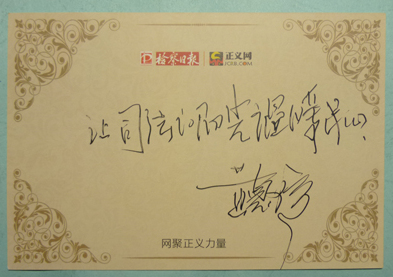 检察日报 正义网
JCRB.COM
让司法的阳光温暖民心
网聚正义力量